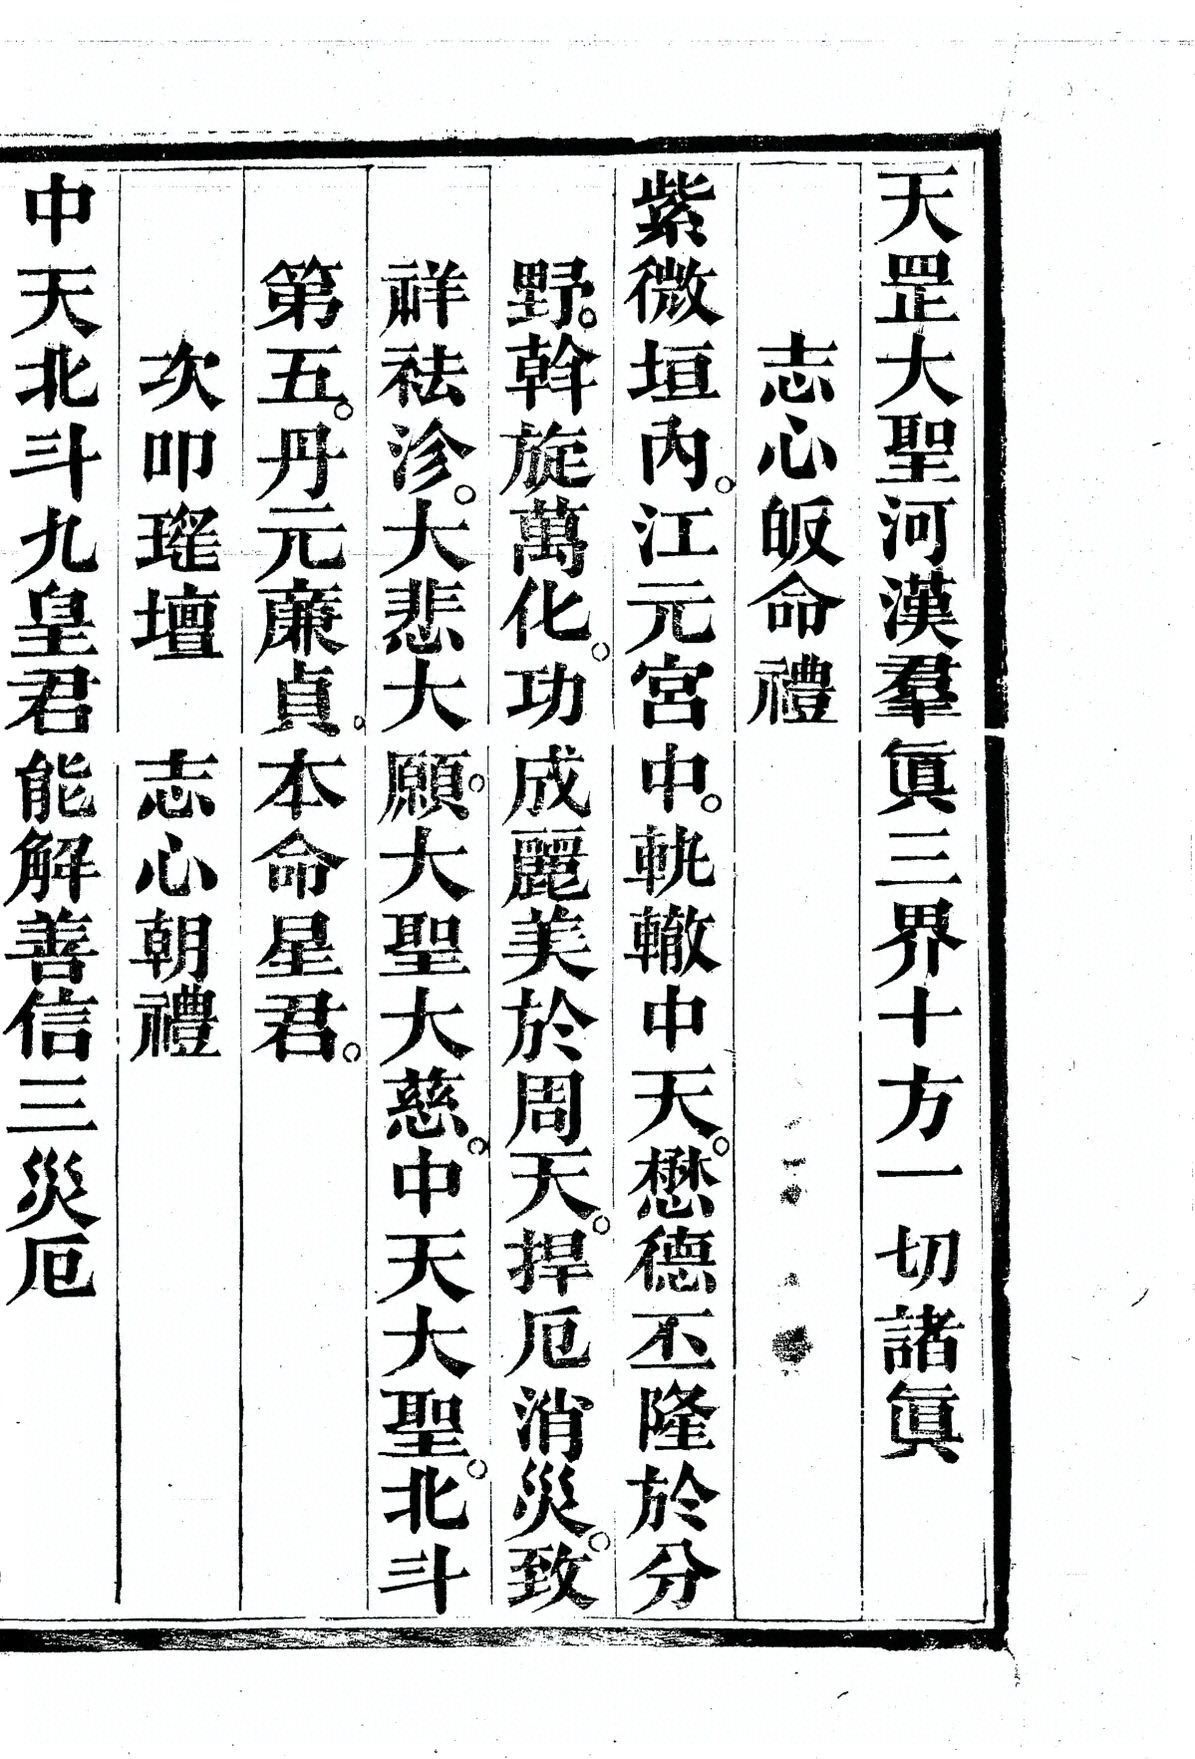 天罡大聖河漢羣眞三界十方一切諸眞
志心皈命禮
紫微垣內。江元宮中。軌轍中天。懋德丕隆於分
野。斡旋萬化。功成麗美於周天。捍厄消災。致
祥祛沴。大悲大願。大聖大慈。中天大聖。北斗
第五。丹元廉貞。本命星君。
次叩壇　志心朝禮
中天北斗九皇君能解善信三災厄